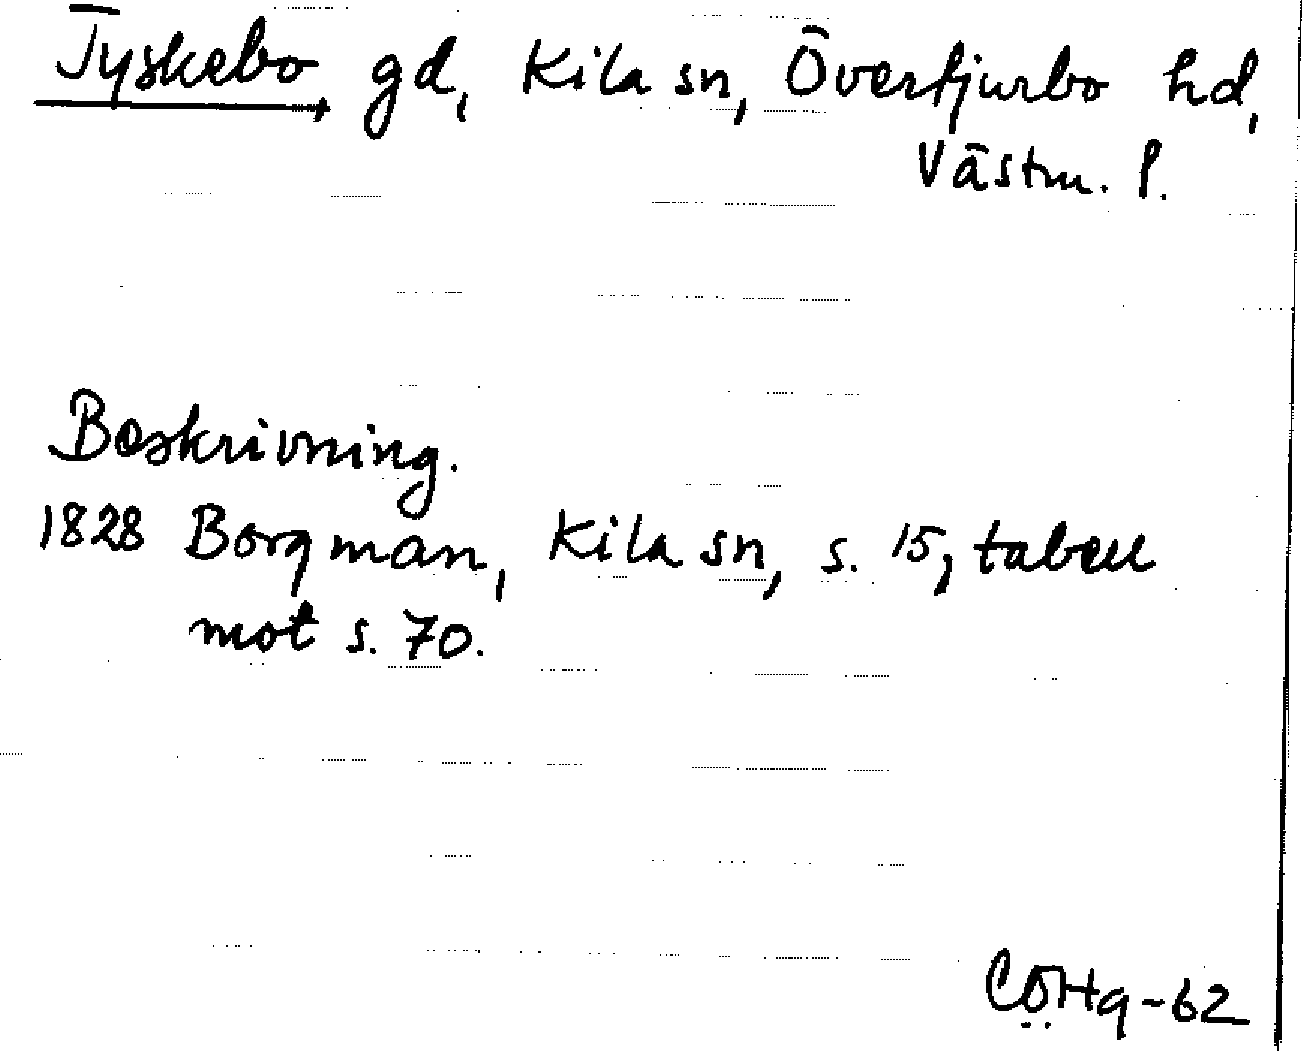 Tyskebo gd, Kila sn, Överfjurbo hd,
Västm. l.
Beskrivning.
1828 Borgman, Kila sn, s. 15, tabell
mot s. 70.